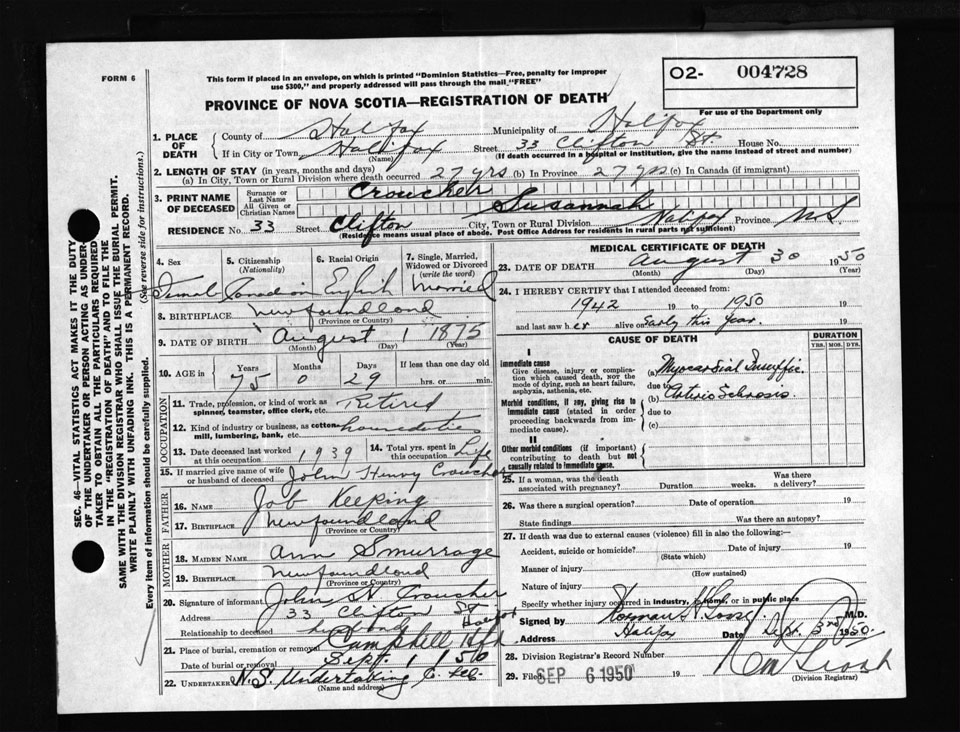 FORM 6
This form if placed in an envelope, on which is printed "Dominion Statistics—Free, penalty for improper
use $300," and properly addressed will pass through the mail "FREE"
O2- 004728
For use of the Department only
PROVINCE OF NOVA SCOTIA—REGISTRATION OF DEATH
1. PLACE OF DEATH County of Halifax Municipality of Halifax
If in City or Town Halifax (Name) Street 33 Clifton St. House No.
(If death occurred in a hospital or institution, give the name instead of street and number)
2. LENGTH OF STAY (in years, months and days)
(a) In City, Town or Rural Division where death occurred 27 yrs (b) In Province 27 yrs (c) In Canada (if immigrant)
3. PRINT NAME OF DECEASED Surname or Last Name Croucher
All Given or Christian Names Susannah
RESIDENCE No. 33 Street Clifton City, Town or Rural Division Halifax Province N S
(Residence means usual place of abode. Post Office Address for residents in rural parts not sufficient)
4. Sex 5. Citizenship (Nationality) 6. Racial Origin 7. Single, Married, Widowed or Divorced (write the word)
Femal Canadian English Married
8. BIRTHPLACE Newfoundland
(Province or Country)
9. DATE OF BIRTH August 1 1875
(Month) (Day) (Year)
10. AGE in Years Months Days If less than one day old
75 0 29 hrs. or min.
OCCUPATION
11. Trade, profession, or kind of work as spinner, teamster, office clerk, etc. Retired
12. Kind of industry or business, as cotton mill, lumbering, bank, etc. homeduties
13. Date deceased last worked at this occupation 1939 14. Total yrs. spent in this occupation Life
15. If married give name of wife or husband of deceased John Henry Croucher
FATHER
16. NAME Job Keeping
17. BIRTHPLACE Newfoundland
MOTHER
18. MAIDEN NAME Ann Smurrage
19. BIRTHPLACE Newfoundland
(Province or Country)
20. Signature of informant John H Croucher
Address 33 Clifton St Halifax
Relationship to deceased husband
21. Place of burial, cremation or removal Campbell Rd
Date of burial or removal Sept. 1 1950
22. UNDERTAKER N.S. Undertaking Co. Ltd.
(Name and address)
MEDICAL CERTIFICATE OF DEATH
23. DATE OF DEATH August 30 1950
(Month) (Day) (Year)
24. I HEREBY CERTIFY that I attended deceased from:
1942 19 to 1950 19
and last saw her alive on Early this year. 19
CAUSE OF DEATH DURATION
YRS. MOS. DYS.
I
Immediate cause
Give disease, injury or complication which caused death, not the mode of dying, such as heart failure, asphyxia, asthenia, etc.
(a) Myocardial Insuffic.
due to
Morbid conditions, if any, giving rise to immediate cause (stated in order proceeding backwards from immediate cause).
(b) Arterio Sclerosis.
due to
(c)
II
Other morbid conditions (if important) contributing to death but not causally related to immediate cause.
25. If a woman, was the death associated with pregnancy? Duration weeks. Was there a delivery?
26. Was there a surgical operation? Date of operation 19
State findings Was there an autopsy?
27. If death was due to external causes (violence) fill in also the following:
Accident, suicide or homicide? Date of injury 19
(State which)
Manner of injury
(How sustained)
Nature of injury
Specify whether injury occurred in industry, home, or in public place
Signed by Norman H. Gosse. M.D.
Address Halifax Date Sept. 3rd 1950.
28. Division Registrar's Record Number
29. Filed SEP 6 1950 19
(Division Registrar)
SEC. 46—VITAL STATISTICS ACT MAKES IT THE DUTY
OF THE UNDERTAKER OR PERSON ACTING AS UNDERTAKER
TO OBTAIN ALL THE PARTICULARS REQUIRED
IN THE "REGISTRATION OF DEATH" AND TO FILE THE
SAME WITH THE DIVISION REGISTRAR WHO SHALL ISSUE THE BURIAL PERMIT.
WRITE PLAINLY WITH UNFADING INK. THIS IS A PERMANENT RECORD.
Every item of information should be carefully supplied. (See reverse side for instructions.)